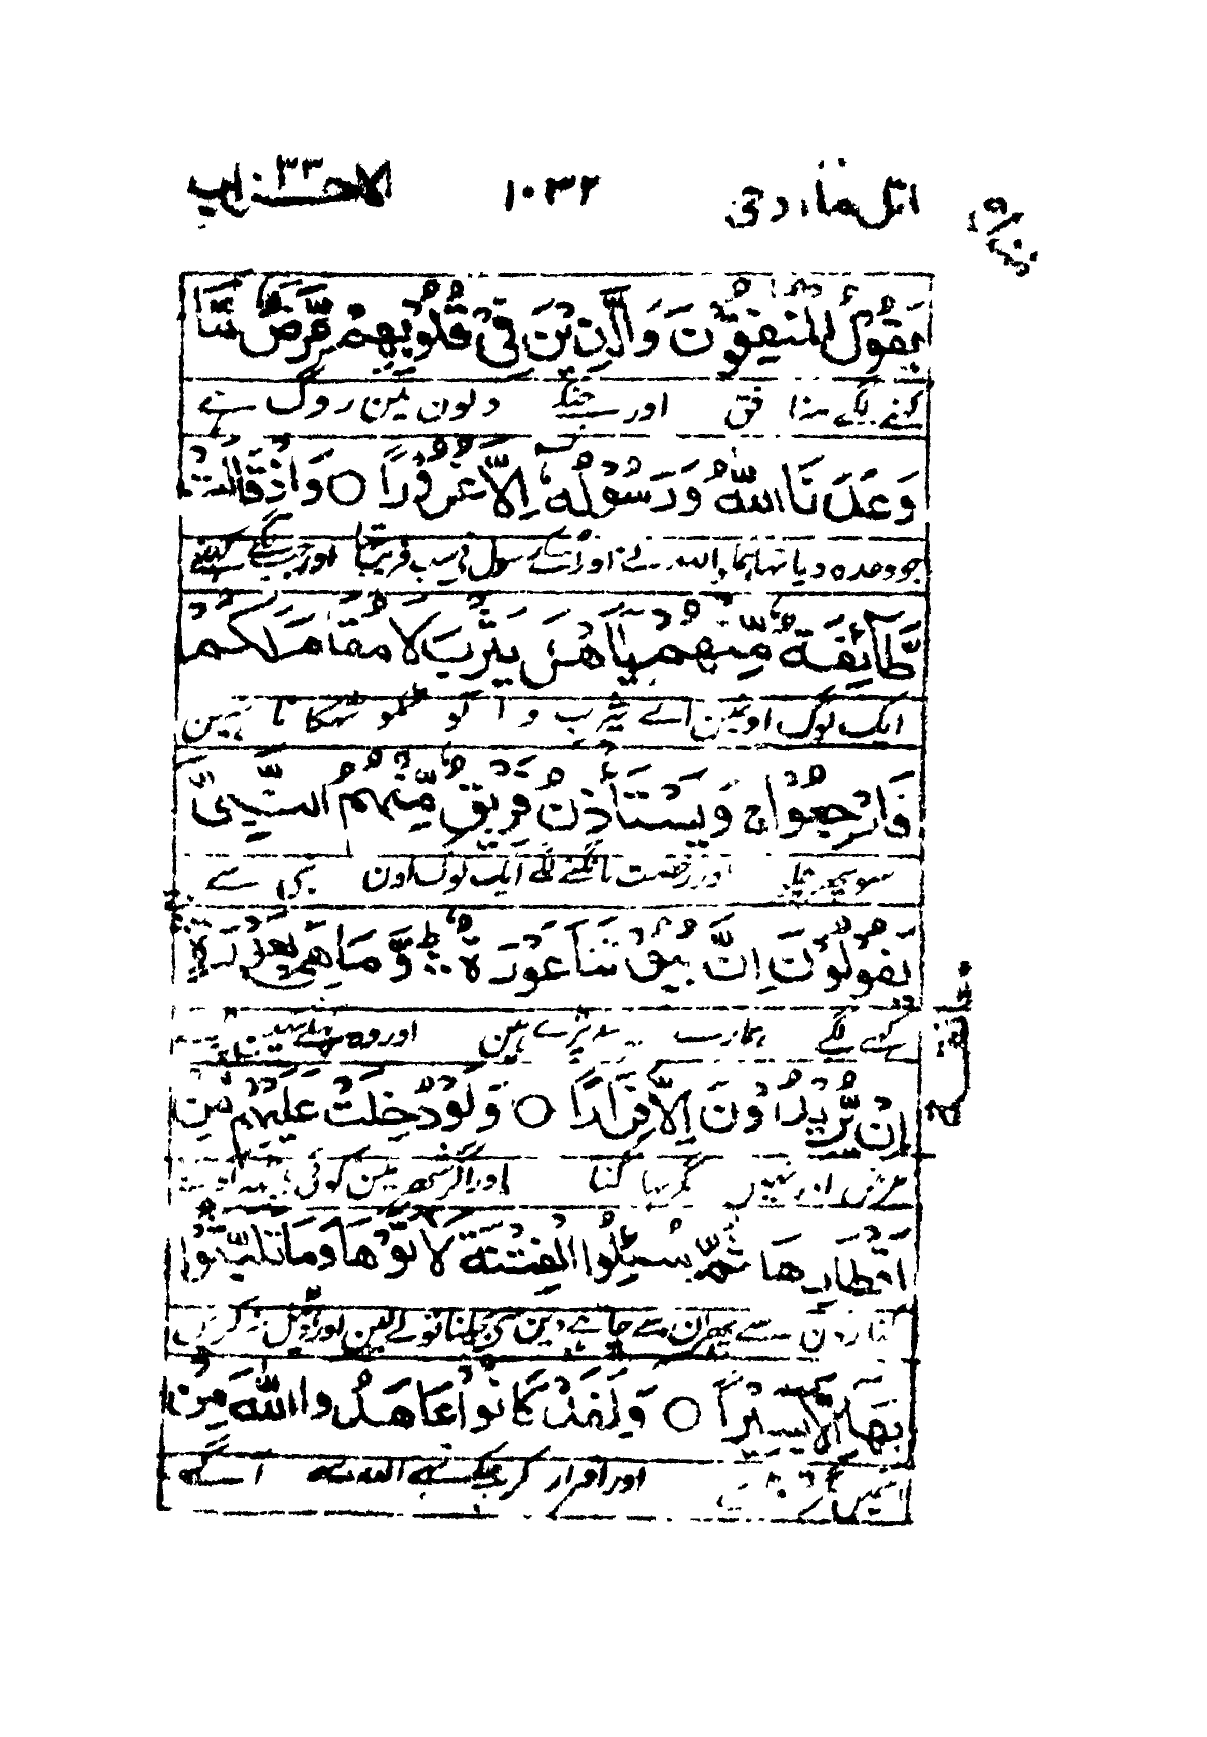 اتل ما اوحی ۱۰۳۲ الاحزاب ۳۳
يَقُوْلُ الْمُنٰفِقُوْنَ وَالَّذِيْنَ فِيْ قُلُوْبِهِمْ مَّرَضٌ مَّا
کہنے لگے منافق اور جنکے دلون مین روگ ہے
وَعَدَنَا اللّٰهُ وَرَسُوْلُهٗۤ اِلَّا غُرُوْرًا ○ وَاِذْ قَالَتْ
جو وعدہ دیا تہا ہمکو اللہ نے اور اسکے رسول نے سب فریب تہا اور جب کہنے لگے
طَّآئِفَةٌ مِّنْهُمْ يٰۤاَهْلَ يَثْرِبَ لَا مُقَامَ لَكُمْ
ایک لوگ اونمین اے یثرب والو تمکو ٹہکانا نہین
فَارْجِعُوْا ج وَيَسْتَاْذِنُ فَرِيْقٌ مِّنْهُمُ النَّبِيَّ
سو پھر چلو اور رخصت مانگنے لگے ایک لوگ اون نبی سے
يَقُوْلُوْنَ اِنَّ بُيُوْتَنَا عَوْرَةٌ ط وَّمَا هِيَ بِعَوْرَةٍ
کہنے لگے ہمارے پڑے ہین اور وہ
اِنْ يُّرِيْدُوْنَ اِلَّا فِرَارًا ○ وَلَوْ دُخِلَتْ عَلَيْهِمْ مِّنْ
غرض اور نہین مگر بہاگنا اور اگر شہر مین کوئی
اَقْطَارِهَا ثُمَّ سُئِلُوا الْفِتْنَةَ لَاٰتَوْهَا وَمَا تَلَبَّثُوْا
کنارون سے پھر ان سے چاہے دین سے بچلنا تو لے لین اور ڈہیل نہ کرین
بِهَاۤ اِلَّا يَسِيْرًا ○ وَلَقَدْ كَانُوْا عَاهَدُوا اللّٰهَ مِنْ
اسمین مگر اور اقرار کر چکے تہے اللہ سے آگے